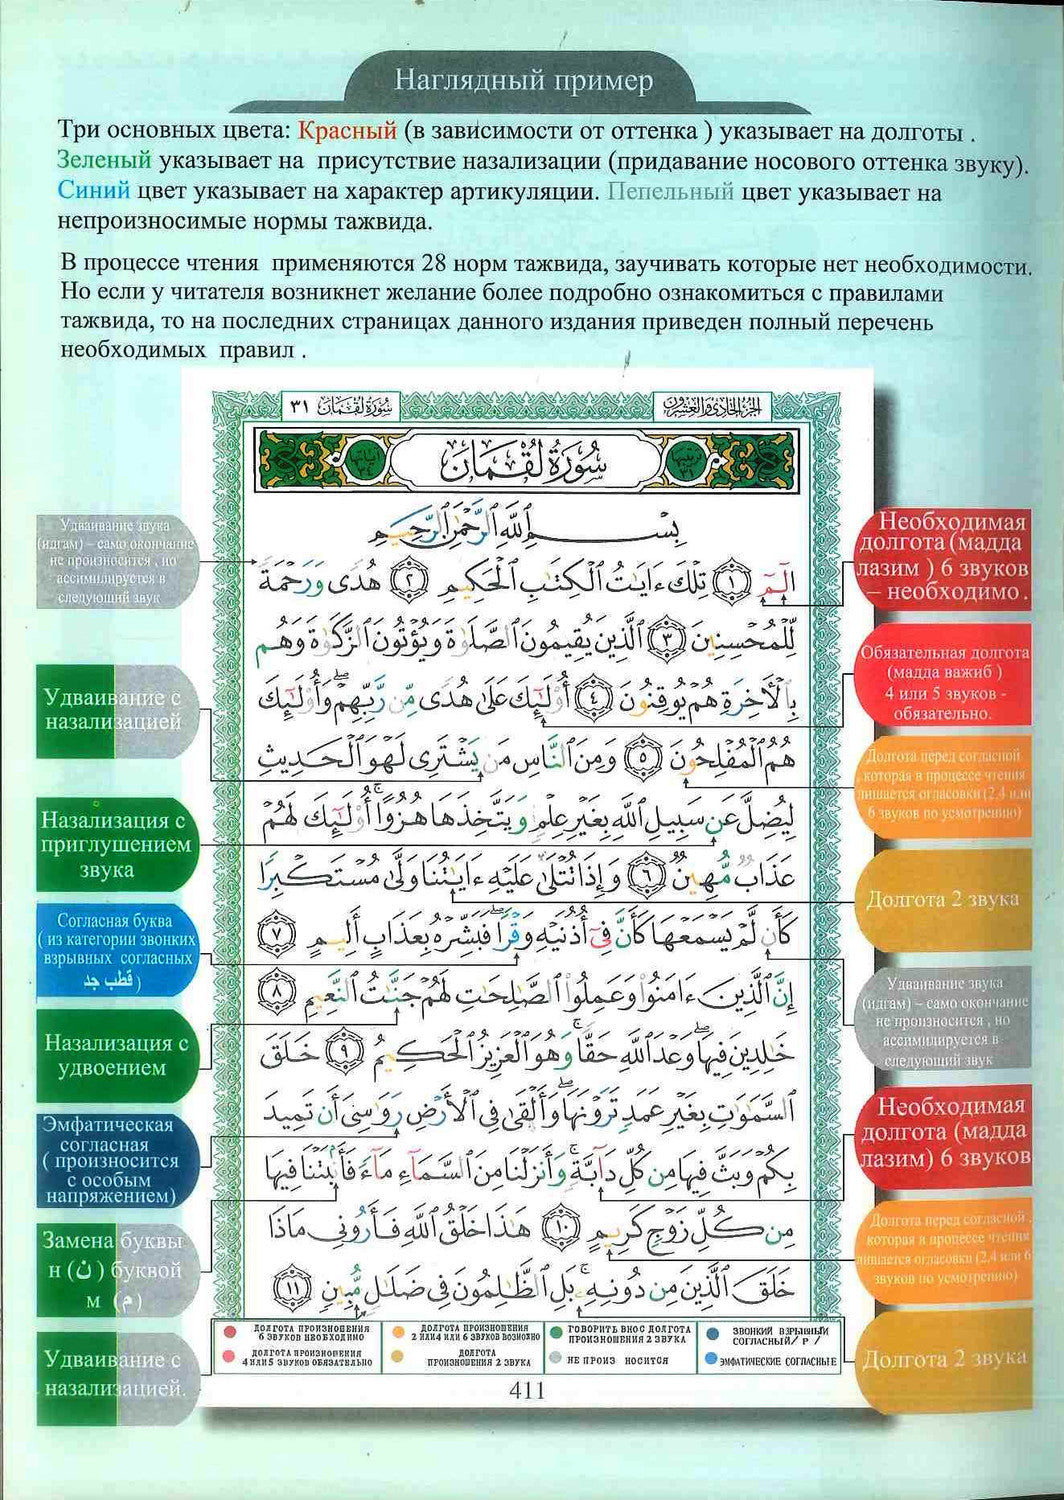 Наглядный пример
Три основных цвета: Красный (в зависимости от оттенка ) указывает на долготы .
Зеленый указывает на присутствие назализации (придавание носового оттенка звуку).
Синий цвет указывает на характер артикуляции. Пепельный цвет указывает на
непроизносимые нормы тажвида.
В процессе чтения применяются 28 норм тажвида, заучивать которые нет необходимости.
Но если у читателя возникнет желание более подробно ознакомиться с правилами
тажвида, то на последних страницах данного издания приведен полный перечень
необходимых правил .
سُورَةُ لُقْمَان ٣١
الجزء الحادي والعشرون
سُورَةُ لُقْمَان
بِسْمِ ٱللَّهِ ٱلرَّحْمَٰنِ ٱلرَّحِيمِ
الٓمٓ ١ تِلْكَ ءَايَٰتُ ٱلْكِتَٰبِ ٱلْحَكِيمِ ٢ هُدًى وَرَحْمَةً
لِّلْمُحْسِنِينَ ٣ ٱلَّذِينَ يُقِيمُونَ ٱلصَّلَوٰةَ وَيُؤْتُونَ ٱلزَّكَوٰةَ وَهُم
بِٱلْءَاخِرَةِ هُمْ يُوقِنُونَ ٤ أُو۟لَٰٓئِكَ عَلَىٰ هُدًى مِّن رَّبِّهِمْ ۖ وَأُو۟لَٰٓئِكَ
هُمُ ٱلْمُفْلِحُونَ ٥ وَمِنَ ٱلنَّاسِ مَن يَشْتَرِى لَهْوَ ٱلْحَدِيثِ
لِيُضِلَّ عَن سَبِيلِ ٱللَّهِ بِغَيْرِ عِلْمٍ وَيَتَّخِذَهَا هُزُوًا ۚ أُو۟لَٰٓئِكَ لَهُمْ
عَذَابٌ مُّهِينٌ ٦ وَإِذَا تُتْلَىٰ عَلَيْهِ ءَايَٰتُنَا وَلَّىٰ مُسْتَكْبِرًا
كَأَن لَّمْ يَسْمَعْهَا كَأَنَّ فِىٓ أُذُنَيْهِ وَقْرًا ۖ فَبَشِّرْهُ بِعَذَابٍ أَلِيمٍ ٧
إِنَّ ٱلَّذِينَ ءَامَنُوا۟ وَعَمِلُوا۟ ٱلصَّٰلِحَٰتِ لَهُمْ جَنَّٰتُ ٱلنَّعِيمِ ٨
خَٰلِدِينَ فِيهَا ۖ وَعْدَ ٱللَّهِ حَقًّا ۚ وَهُوَ ٱلْعَزِيزُ ٱلْحَكِيمُ ٩ خَلَقَ
ٱلسَّمَٰوَٰتِ بِغَيْرِ عَمَدٍ تَرَوْنَهَا ۖ وَأَلْقَىٰ فِى ٱلْأَرْضِ رَوَٰسِىَ أَن تَمِيدَ
بِكُمْ وَبَثَّ فِيهَا مِن كُلِّ دَآبَّةٍ ۚ وَأَنزَلْنَا مِنَ ٱلسَّمَآءِ مَآءً فَأَنۢبَتْنَا فِيهَا
مِن كُلِّ زَوْجٍ كَرِيمٍ ١٠ هَٰذَا خَلْقُ ٱللَّهِ فَأَرُونِى مَاذَا
خَلَقَ ٱلَّذِينَ مِن دُونِهِۦ ۚ بَلِ ٱلظَّٰلِمُونَ فِى ضَلَٰلٍ مُّبِينٍ ١١
Удваивание звука
(идгам) – само окончание
не произносится , но
ассимилируется в
следующий звук
Удваивание с
назализацией
Назализация с
приглушением
звука
Согласная буква
( из категории звонких
взрывных согласных
قطب جد )
Назализация с
удвоением
Эмфатическая
согласная
( произносится
с особым
напряжением)
Замена буквы
н (ن ) буквой
м (م)
Удваивание с
назализацией.
Необходимая
долгота (мадда
лазим ) 6 звуков
– необходимо.
Обязательная долгота
(мадда важиб )
4 или 5 звуков -
обязательно.
Долгота перед согласной
которая в процессе чтения
лишается огласовки (2,4 или
6 звуков по усмотрению)
Долгота 2 звука
Удваивание звука
(идгам) – само окончание
не произносится , но
ассимилируется в
следующий звук
Необходимая
долгота (мадда
лазим) 6 звуков
Долгота перед согласной
которая в процессе чтения
лишается огласовки (2,4 или 6
звуков по усмотрению)
Долгота 2 звука
ДОЛГОТА ПРОИЗНОШЕНИЯ
6 ЗВУКОВ НЕОБХОДИМО
ДОЛГОТА ПРОИЗНОШЕНИЯ
4 ИЛИ 5 ЗВУКОВ ОБЯЗАТЕЛЬНО
ДОЛГОТА ПРОИЗНОШЕНИЯ
2 ИЛИ 4 ИЛИ 6 ЗВУКОВ ВОЗМОЖНО
ДОЛГОТА
ПРОИЗНОШЕНИЯ 2 ЗВУКА
ГОВОРИТЬ В НОС ДОЛГОТА
ПРОИЗНОШЕНИЯ 2 ЗВУКА
НЕ ПРОИЗ НОСИТСЯ
ЗВОНКИЙ ВЗРЫВНЫЙ
СОГЛАСНЫЙ/ Р /
ЭМФАТИЧЕСКИЕ СОГЛАСНЫЕ
411